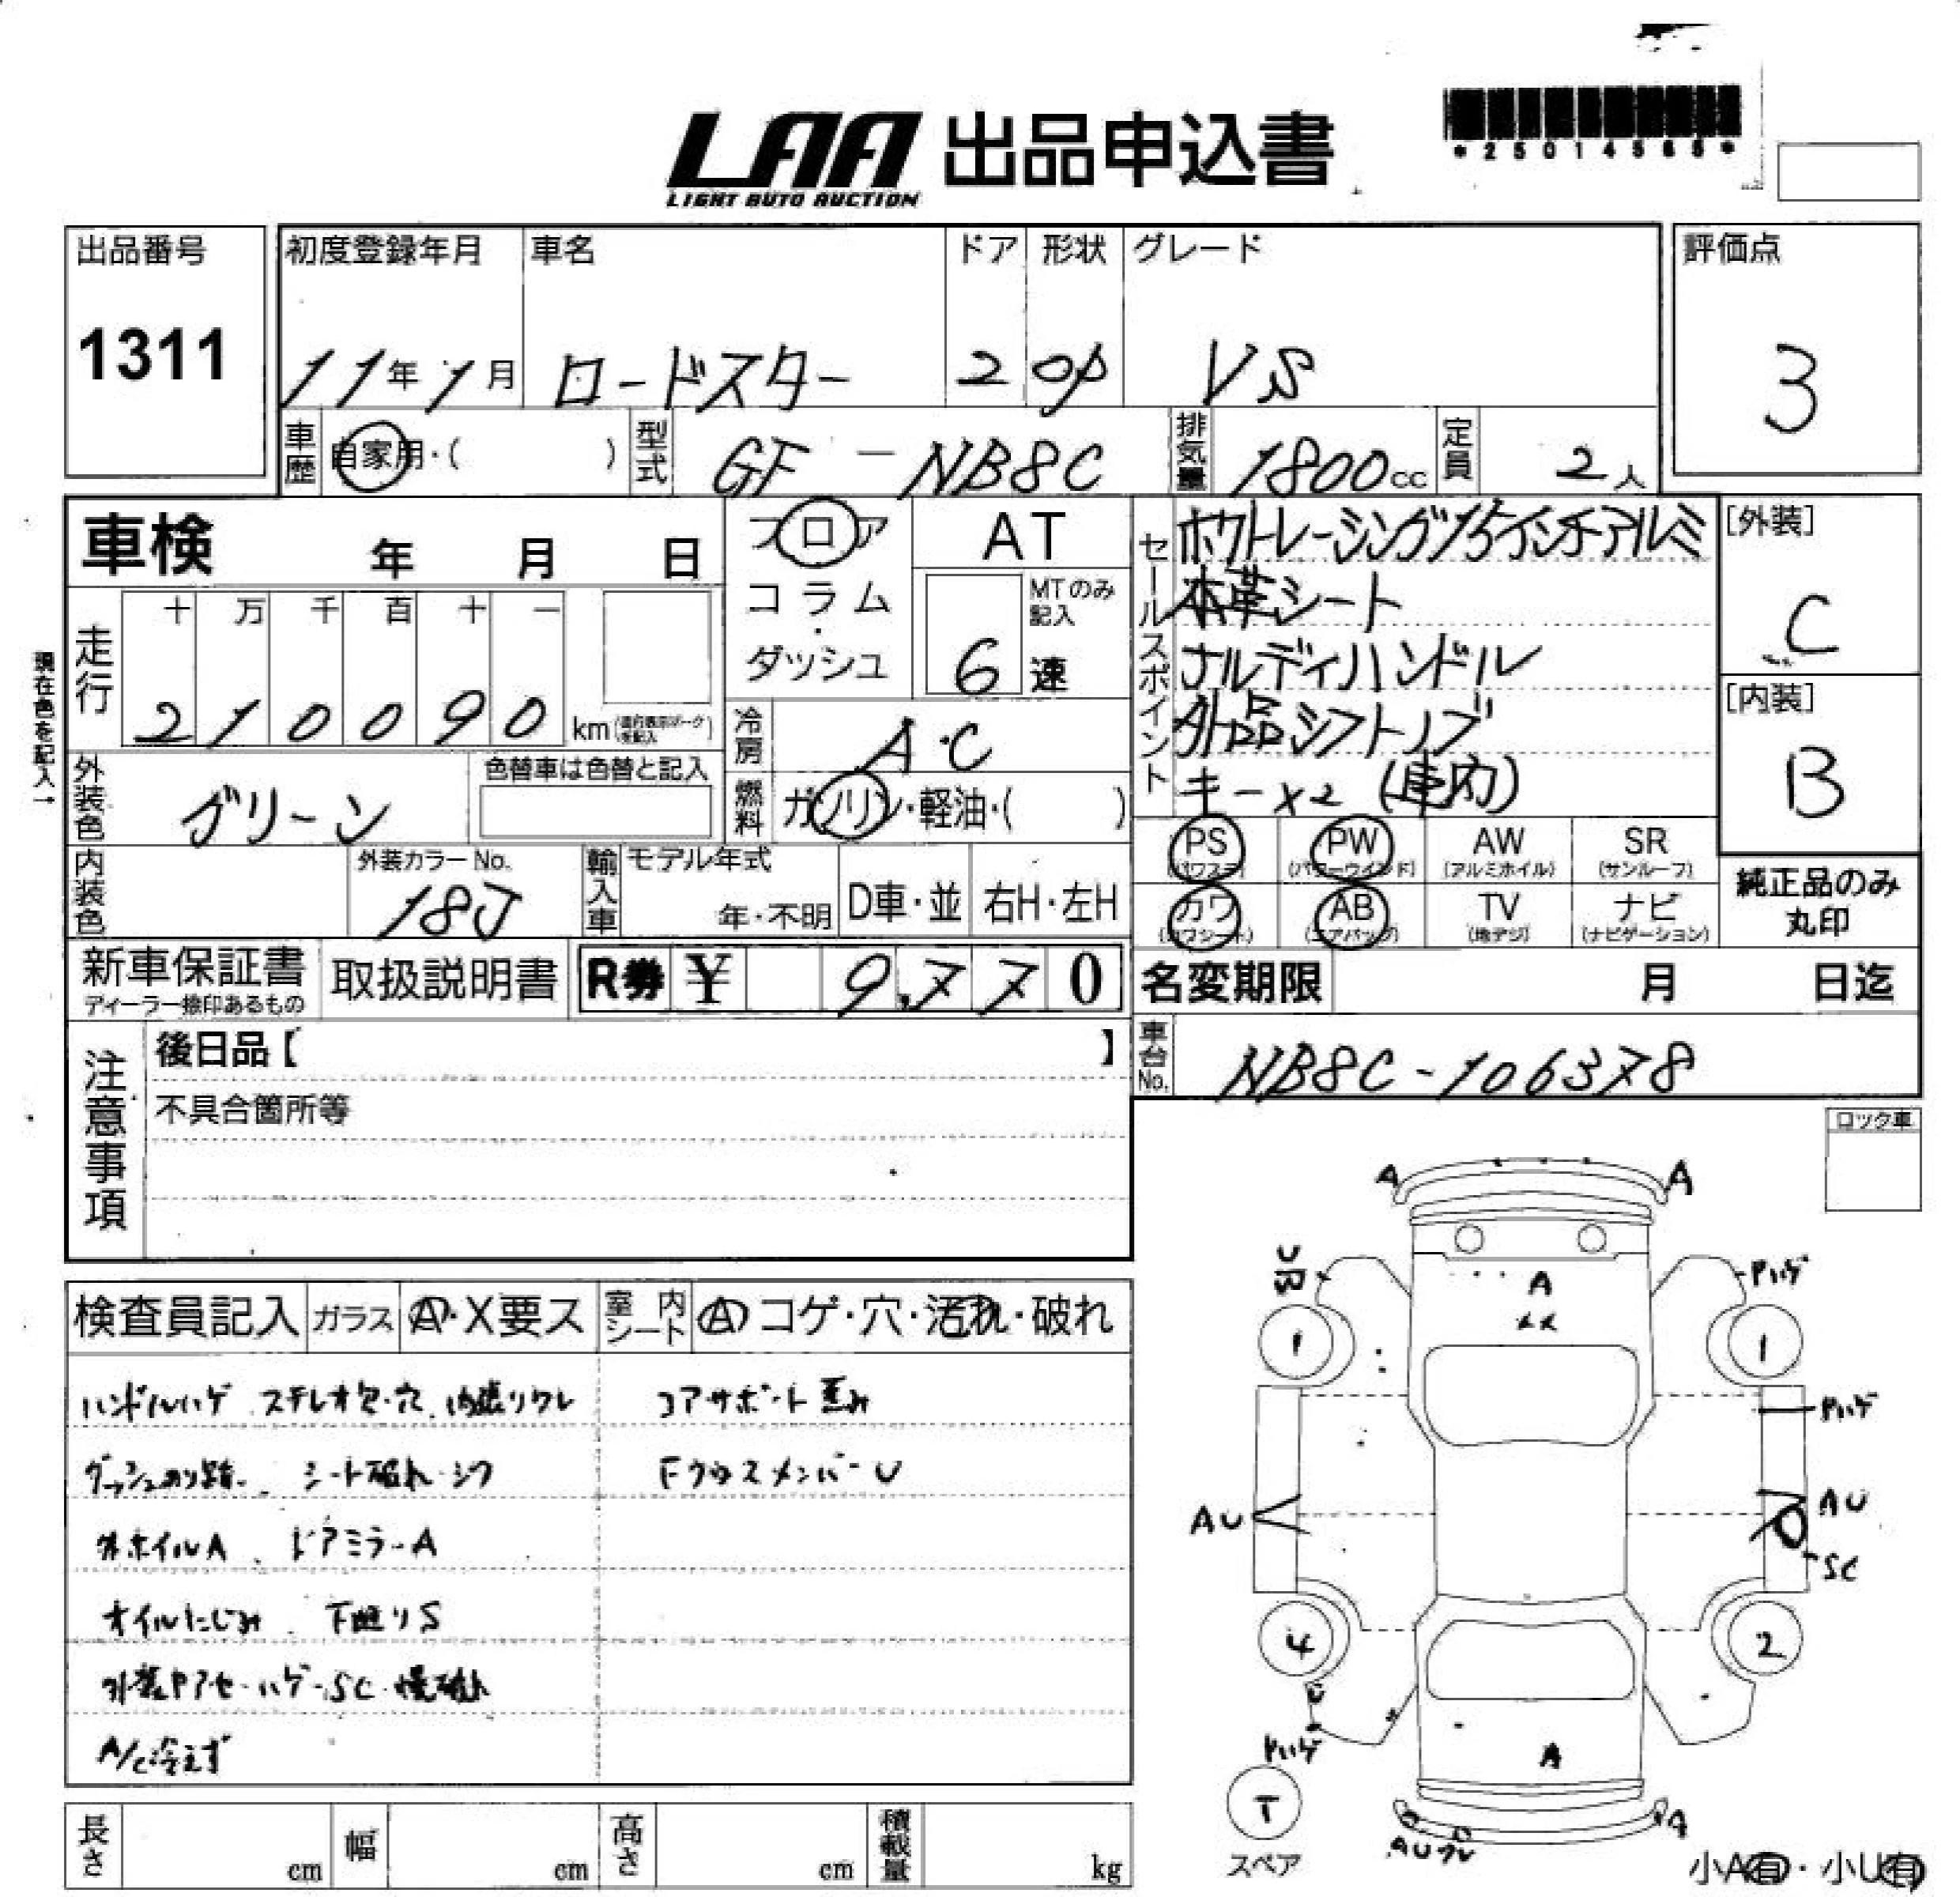 LAA 出品申込書
LIGHT AUTO AUCTION
*25014565*
出品番号
1311
初度登録年月 車名 ドア 形状 グレード
11年1月 ロードスター 2 OP VS
評価点
3
車歴 自家用・( ) 型式 GF-NB8C 排気量 1800cc 定員 2人
車検 年 月 日
フロア
コラム
・
ダッシュ
AT
MTのみ記入
6速
セールスポイント
ホワトレーシング15インチアルミ
本革シート
ナルディハンドル
外品シフトノブ
キー×2 (車内)
[外装]
C
[内装]
B
現在色を記入→
走行
十 万 千 百 十 一
2 1 0 0 9 0 km
冷房 A・C
外装色 グリーン
色替車は色替と記入
燃料 ガソリン・軽油・( )
PS (パワステ) PW (パワーウインド) AW (アルミホイル) SR (サンルーフ)
カワ (カワシート) AB (エアバッグ) TV (地デジ) ナビ (ナビゲーション)
純正品のみ
丸印
内装色
外装カラーNo.
18J
輸入車 モデル年式
年・不明
D車・並 右H・左H
新車保証書
ディーラー捺印あるもの
取扱説明書
R券 ¥ 9,770
名変期限 月 日迄
車台No. NB8C-106378
注意事項
後日品【 】
不具合箇所等
ロック車
検査員記入 ガラス A・X要ス 室内シート A コゲ・穴・汚れ・破れ
ハンドルハゲ ステレオ欠・穴 内張りワレ
コアサポート歪み
ダッシュのり跡 シート破れ・シワ
FクロスメンバーU
外ホイルA ドアミラーA
オイルにじみ 下廻りS
外装ヤアセ・ハゲ・SC・幌破れ
A/C冷えず
A A
A
1 1
Pハゲ
Pハゲ
AU
AU
SC
4 2
U
Pハゲ
A
T
スペア
AUワレ
A
小A有・小U有
長さ cm 幅 cm 高さ cm 積載量 kg